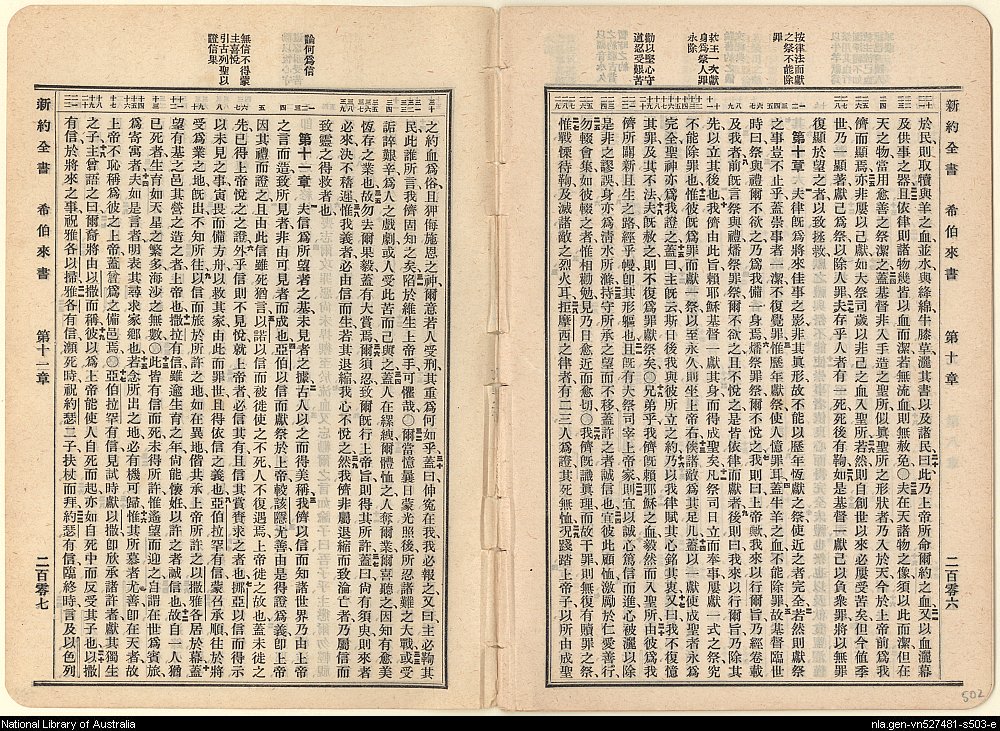 新約全書 希伯來書 第十章 二百零六
按律法而獻之祭不能除罪
救主一次獻身爲祭人罪永除
勸以堅心守道忍受艱苦
於民則取犢與羊之血並水與絳緜牛膝草灑其書以及諸民曰此乃上帝所命爾約之血又以血灑幕
及供事之器且依律則諸物幾皆以血而潔若無流血則無赦免〇夫在天諸物之像須以此而潔但在
天之物當用愈善之祭潔之蓋基督非入手造之聖所似眞聖所之形狀者乃入於天今於上帝前爲我
儕而顯焉非屢以己獻如大祭司歲以非己之血入聖所若然則自創世以來必屢受苦矣但今値季
世乃一顯著獻己爲祭以除人罪夫存乎人者有一死死後有鞫如是基督一獻己以負衆罪將以無罪
復顯於望之者以致拯救
第十章 夫律旣爲將來佳事之影非其眞形故不能以歷年恆獻之祭使近之者完全若然則獻祭
之事豈不止乎蓋崇事者一潔不復覺罪惟歷年獻祭使人憶罪耳蓋牛羊之血不能除罪故基督臨世
時曰祭與禮爾不欲之乃爲我備一身焉燔祭罪祭爾不悅之我則曰上帝歟我來以行爾旨乃經卷載
及我者前旣言祭與禮燔祭罪祭爾不欲之且不悅之是皆依律而獻者後則曰我來以行爾旨乃除其
先以立其後也我儕由此旨賴耶穌基督一獻其身而得成聖矣凡祭司日立而奉事屢獻一式之祭究
不能除罪也惟彼旣爲罪而獻一祭以至永久則坐上帝右俟諸敵爲其足几蓋以一獻使成聖者永爲
完全聖神亦爲我證之蓋主旣云斯日後我與彼所立之約乃以我律賦其心銘其衷又曰我不復憶
其罪及其不法夫旣赦之則不復爲罪獻祭矣〇兄弟乎我儕旣賴耶穌之血毅然而入聖所由彼爲我
儕所闢新且生之路經乎幔卽其形軀也且旣有大祭司宰上帝家則宜以誠心篤信而進心被灑以除
是非之謬誤身亦爲淸水所滌持守所承之望而不移蓋許之者誠信也宜彼此顧恤激厲於仁愛善行
勿輟會集如彼輟之者惟相勸勉見乃日愈近而愈切〇我儕旣識眞理而故干罪則無復有贖罪之祭
惟戰慄待鞫及滅諸敵之烈火耳拒摩西之律者有二三人爲證其死無恤況踐踏上帝子以所由成聖
新約全書 希伯來書 第十一章 二百零七
論何爲信
無信不得蒙主喜悅
引古列聖以證信果
之約血爲俗且狎侮施恩之神爾意若人受刑其重爲何如乎蓋曰伸寃在我我必報之又曰主必鞫其
民此誰所言我儕固知之矣陷於維生上帝手可懼哉〇爾當憶曩日蒙光照後所忍諸難之大戰或受
詬誶艱辛爲人之戲劇或人受此苦而己與之蓋人在縲絏爾體恤之人奪爾業爾喜聽之因知有愈美
恆存之業也故勿去爾果毅蓋有大賞焉爾須忍致爾旣行上帝旨則得其所許蓋曰尚有頃與則來者
必來決不稽遲惟我義者必由信而生若其退縮我心不悅之然我儕非屬退縮而致淪亡者乃屬信而
致靈之得救者也
第十一章 夫信爲所望者之基未見者之據古人以之而得美稱我儕以信而知諸世界乃由上帝
之言而造致所見者非由可見者而成也亞伯以信而獻祭於上帝較該隱尤善由是得證爲義卽上帝
因其禮而證之且由此信雖死猶言以諾以信而被徙使之不死人不復遇焉上帝徙之故也蓋未徙之
先已得上帝悅之之證外乎信則不見悅就上帝者必信其有且信其賞賚求之者也挪亞以信而得示
以未見之事寅畏而備方舟以救其家由此而罪世且得依信之義也亞伯拉罕有信蒙召承順往於將
受爲業之地旣出不知所往以信而旅於所許之地如在異地偕其共承上帝所許之以撒雅各居於幕蓋
望有基之邑其營之造之者上帝也撒拉有信雖逾生育之年尚能懷姙以許之者誠信也故自一人猶
已死者生育如天星之繁多海沙之無數〇此皆有信而死未得所許惟遙望而迎之自謂在世爲賓旅
爲寄寓者夫如是言者明表其尋求家鄉也若念所出之地必有機可歸惟其所慕者尤善卽在天者故
上帝不恥稱爲彼之上帝蓋嘗爲之備邑焉〇亞伯拉罕有信見試時獻以撒卽欣承諸許者獻其獨生
之子主曾語之曰爾裔將由以撒而稱彼以爲上帝能使人自死而起亦如自死中而反受其子也以撒
有信於將來之事祝雅各以掃雅各有信瀕死時祝約瑟二子扶杖而拜約瑟有信臨終時言及以色列
National Library of Australia
nla.gen-vn527481-s503-e
502